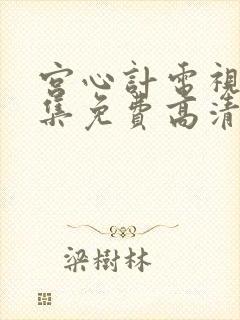 宮心計電視
集免費高清
梁樹林